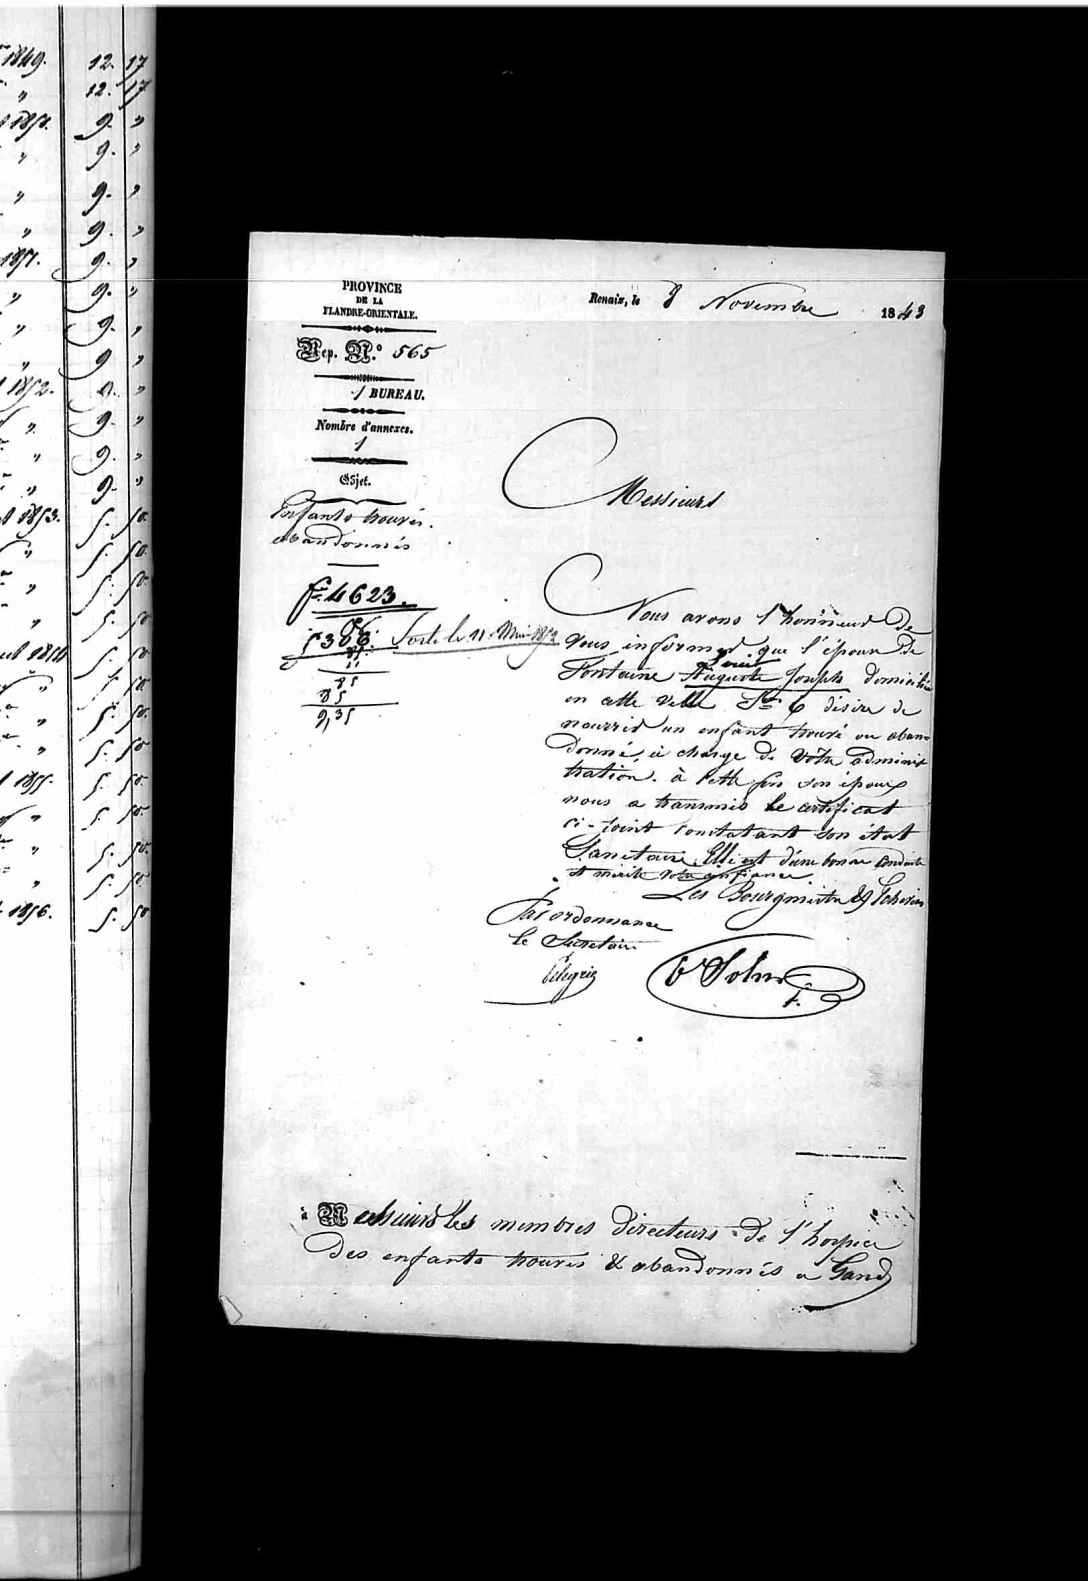 1849. 12. 17
" 12. 17
9. "
" 9. "
" 9. "
" 9. "
9. "
" 9. "
" 9. "
" 9. "
1852. 9. "
" 9. "
" 9. "
" 9. "
1853. 5. 50.
" 5. 50.
" 5. 50.
" 5. 50.
5. 50
" 5. 50.
" 5. 50.
" 5. 50
1855. 5. 50.
" 5. 50.
" 5. 50.
" 5. 50
1856. 5. 50
PROVINCE
DE LA
FLANDRE-ORIENTALE.
Rep. N.º 565
1 BUREAU.
Nombre d'annexes.
1
Objet.
Enfants trouvés.
abandonnés
4623.
Sorti le 11 Mai
85
9,35
Renaix, le 8 Novembre 1843
Messieurs
Nous avons l'honneur de
vous informer que l'épouse de
Louis
Fontaine Auguste Joseph domicilié
en cette ville 6 désire de
nourrir un enfant trouvé ou aban-
donné, à charge de votre adminis
tration. à cette fin son époux
nous a transmis le certificat
ci-joint constatant son état
Sanitaire. Elle est d'une bonne conduite
et mérite votre confiance
Les Bourgmestre & Echevins
Par ordonnance
le Secrétaire
à Messieurs les membres directeurs de l'hospice
des enfants trouvés & abandonnés a Gand